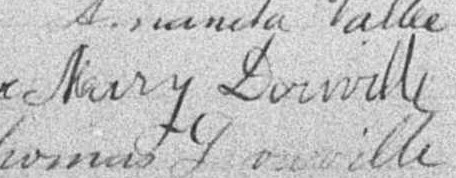 Amanda Vallee
Mary Douville
homas Douville